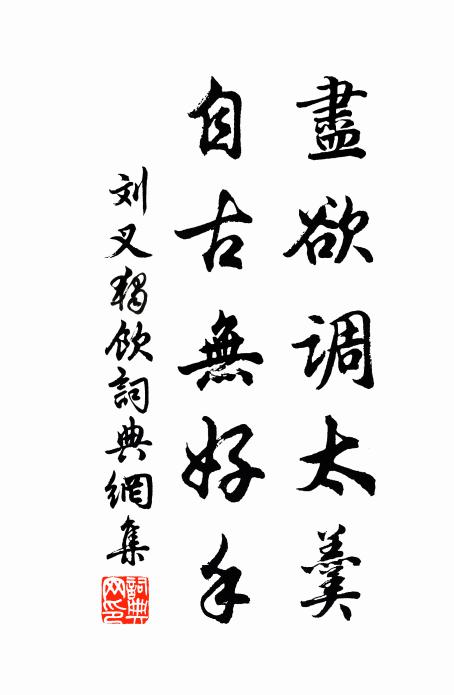 盡欲調太羹
自古無好手
刘叉獨飲詞典網集
詞典
网印